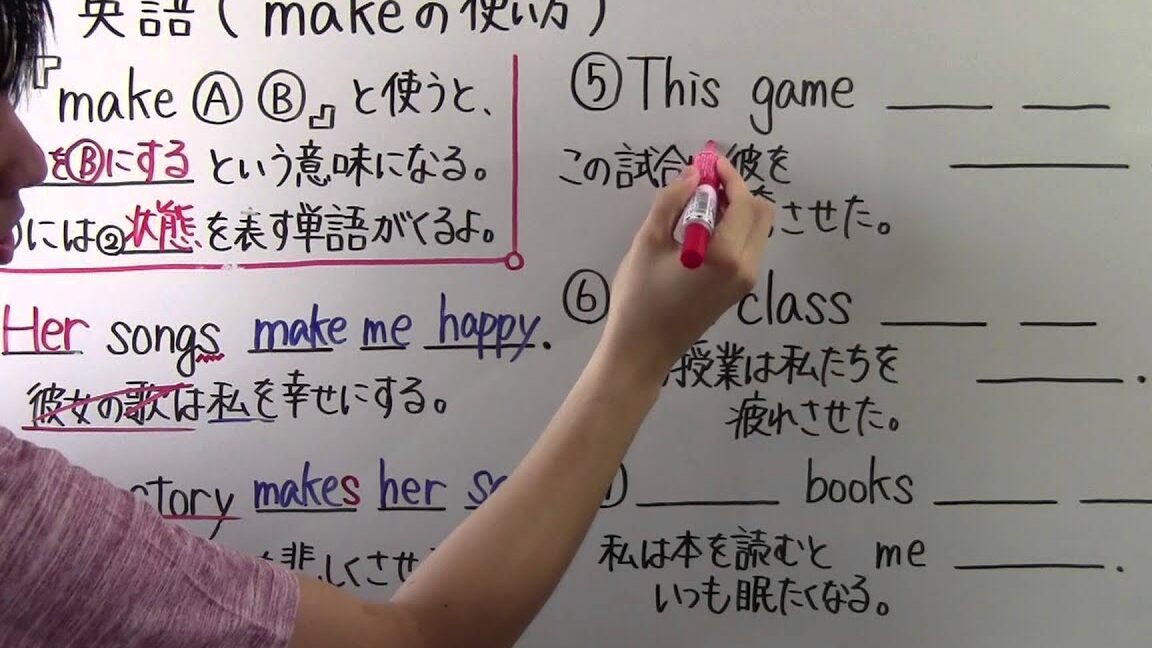 英語(makeの使い方)
『make Ⓐ Ⓑ』と使うと、
をⒷにする という意味になる。
には②状態を表す単語がくるよ。
Her songs make me happy.
彼女の歌は私を幸せにする。
story makes her
悲しくさせ
⑤This game ____ ____
この試合 彼を ____
させた。
⑥ class ____ ____
授業は私たちを ____.
疲れさせた。
____ books ____ ____
私は本を読むと me ____.
いつも眠たくなる。